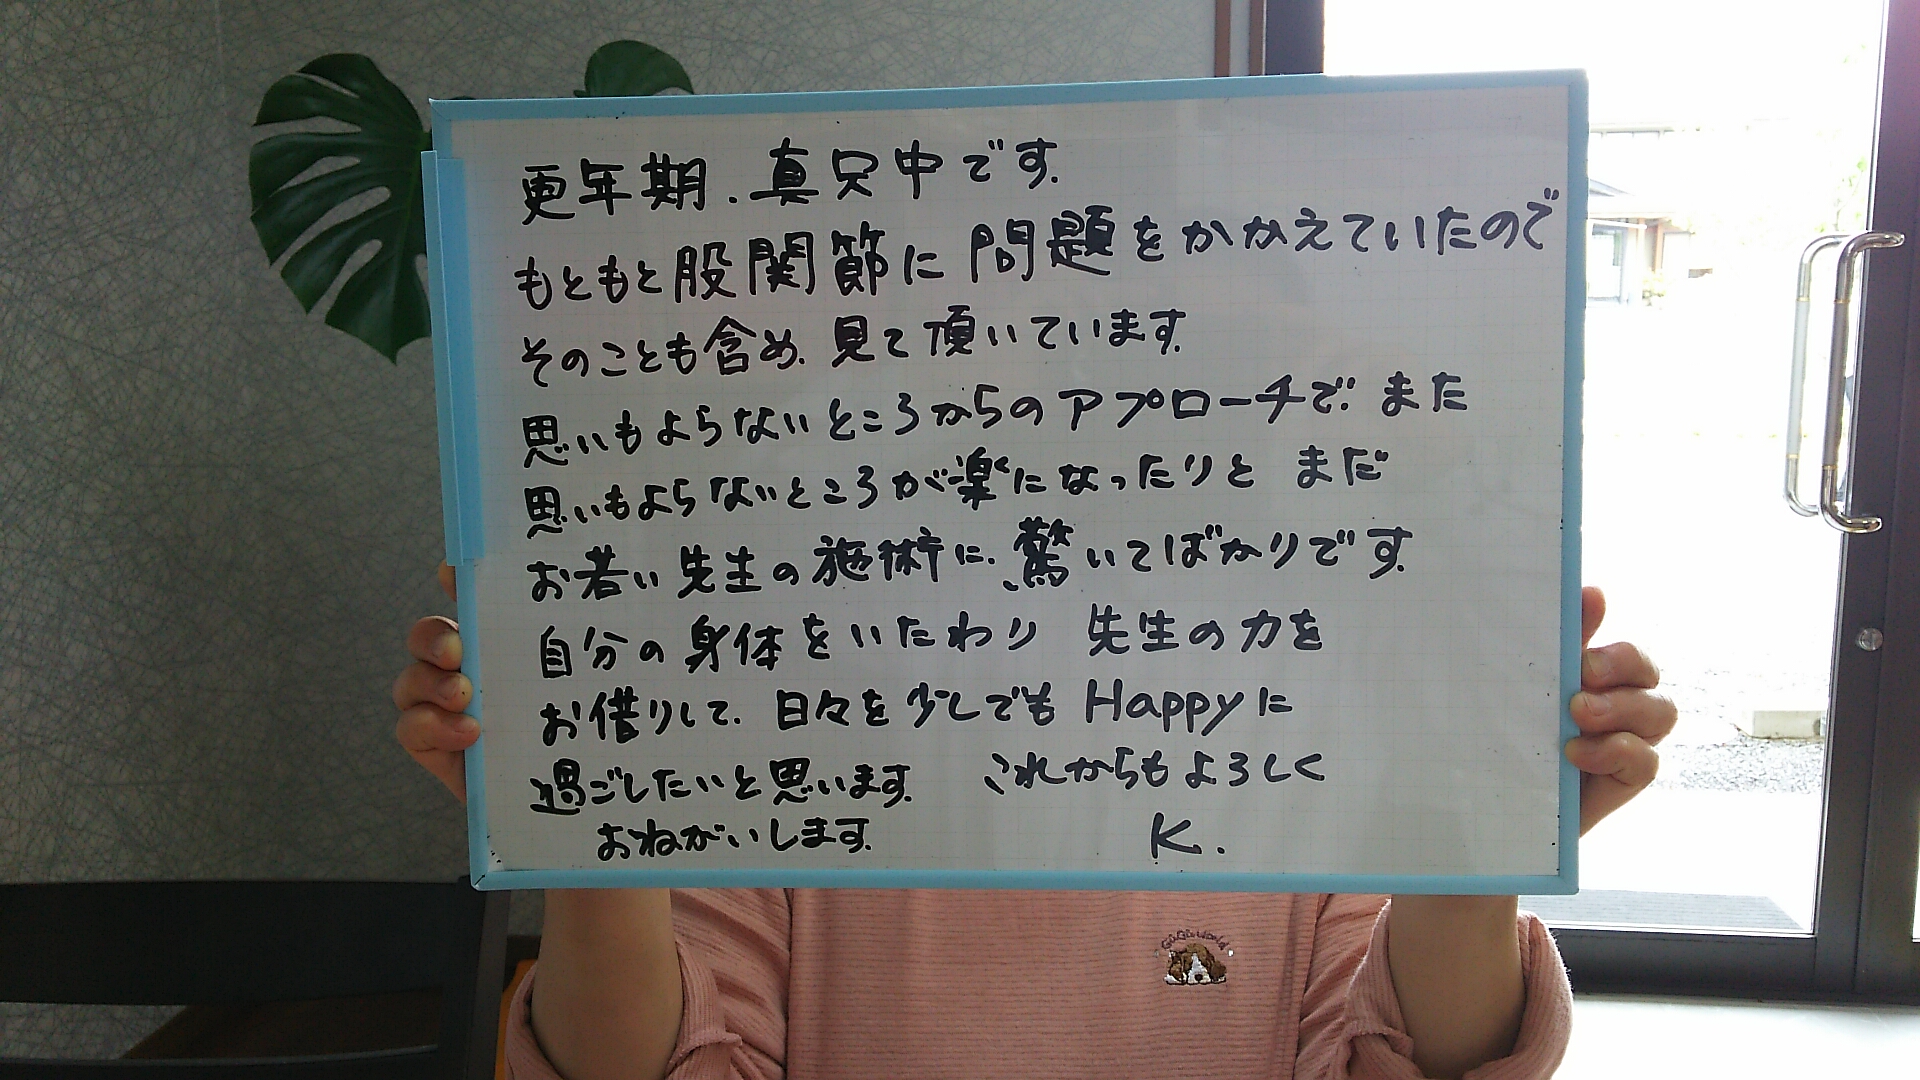 更年期.真只中です.
もともと股関節に問題をかかえていたので
そのことも含め.見て頂いています.
思いもよらないところからのアプローチで.また
思いもよらないところが楽になったりと まだ
お若い先生の施術に.驚いてばかりです.
自分の身体をいたわり 先生の力を
お借りして.日々を少しでもHappyに
過ごしたいと思います. これからもよろしく
おねがいします. K.